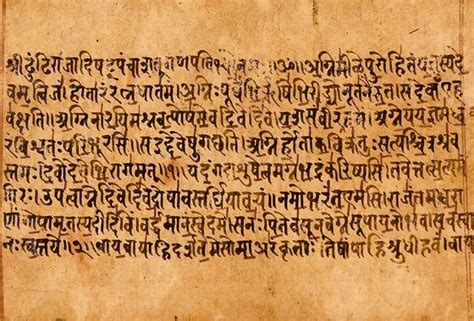 श्रीढुंढिराजादिषट्पंचाशत्गणपतिभ्योनमः॥ॐ॥अग्निमीळेपुरोहितंयज्ञस्यदे
वमृत्विजं।होतारंरत्नधातमं।अग्निःपूर्वेभिर्ऋषिभिरीड्योनूतनैरुत।सदेवाँएह
वक्षति॥अग्निनारयिमश्नवत्पोषमेवदिवेदिवे।यशसंवीरवत्तमं।अग्नेयंयज्ञमध्व
रंविश्वतःपरिभूरसि।सइद्देवेषुगच्छति।अग्निर्होताकविक्रतुःसत्यश्चित्रश्रव
स्तमः।देवोदेवेभिरागमत्॥१॥यदंगदाशुषेत्वमग्नेभद्रंकरिष्यसि।तवेत्तत्सत्यमं
गिरः।उपत्वाग्नेदिवेदिवेदोषावस्तर्धियावयं॥नमोभरंतएमसि।राजंतमध्वरा
णांगोपामृतस्यदीदिविं।वर्धमानंस्वेदमे।सनःपितेवसूनवेग्नेसूपायनोभव।सचस्वा
नःस्वस्तये॥२॥वायवायाहिदर्शतेमेसोमाअरंकृताः।तेषांपाहिश्रुधीहवं।वाय